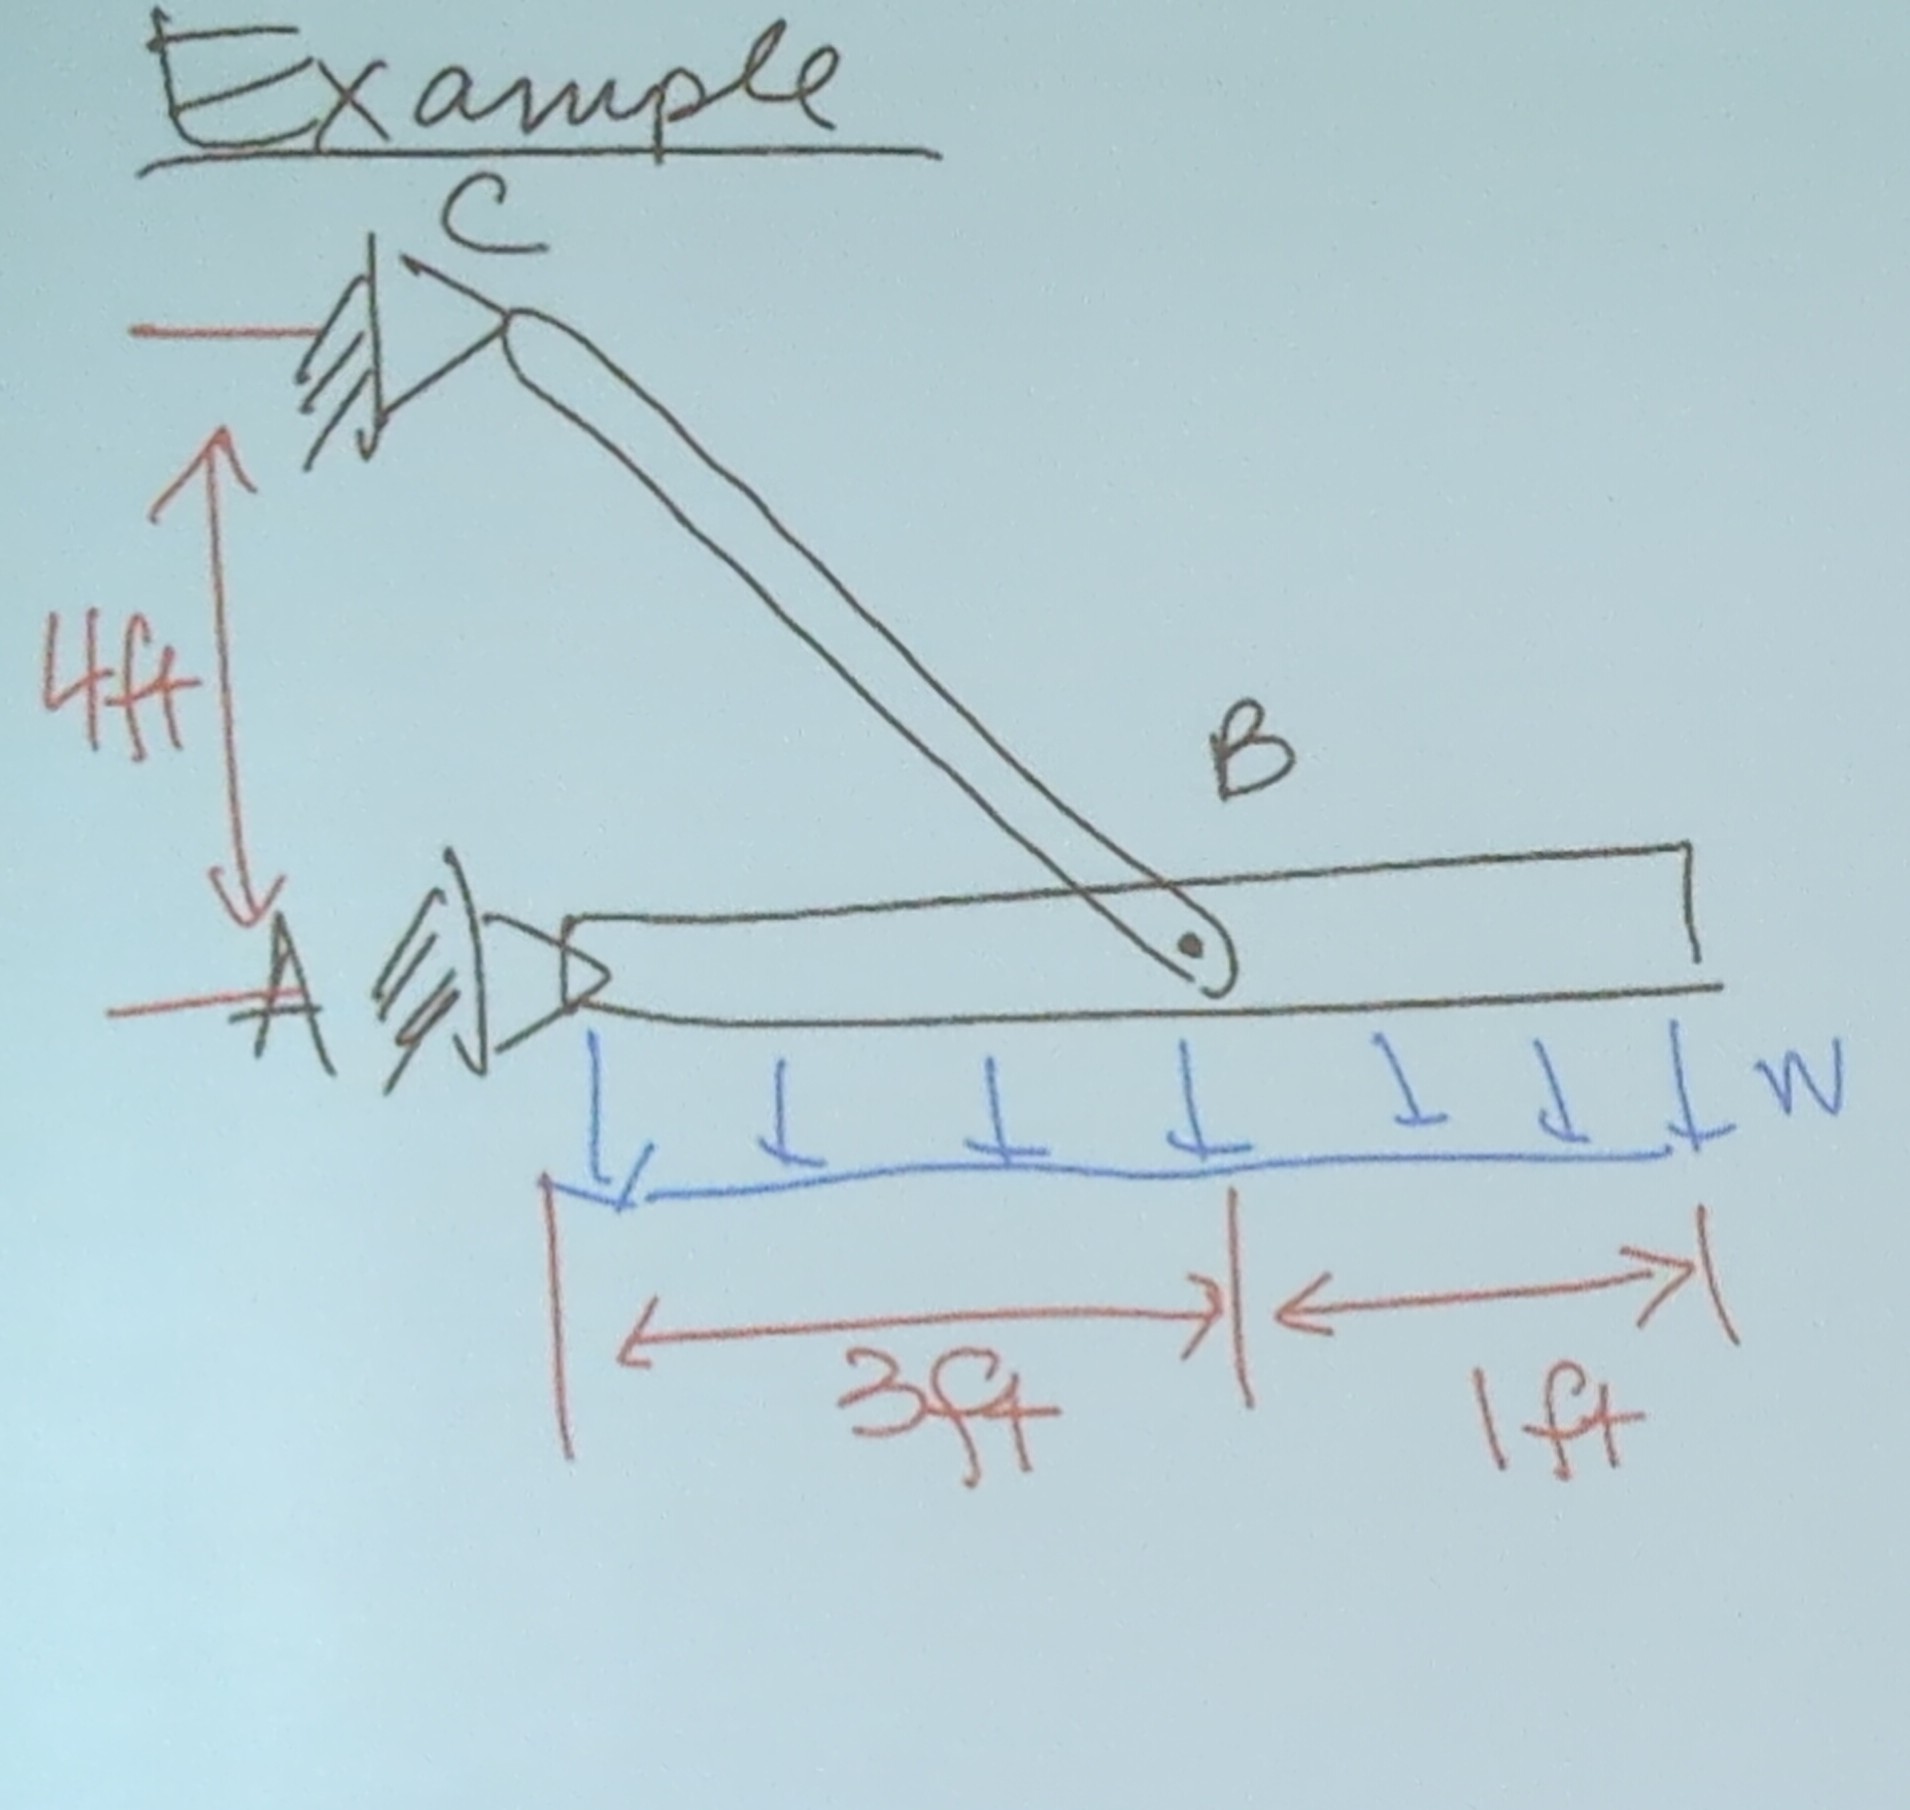 Example
C
4ft
B
A
W
3ft
1ft